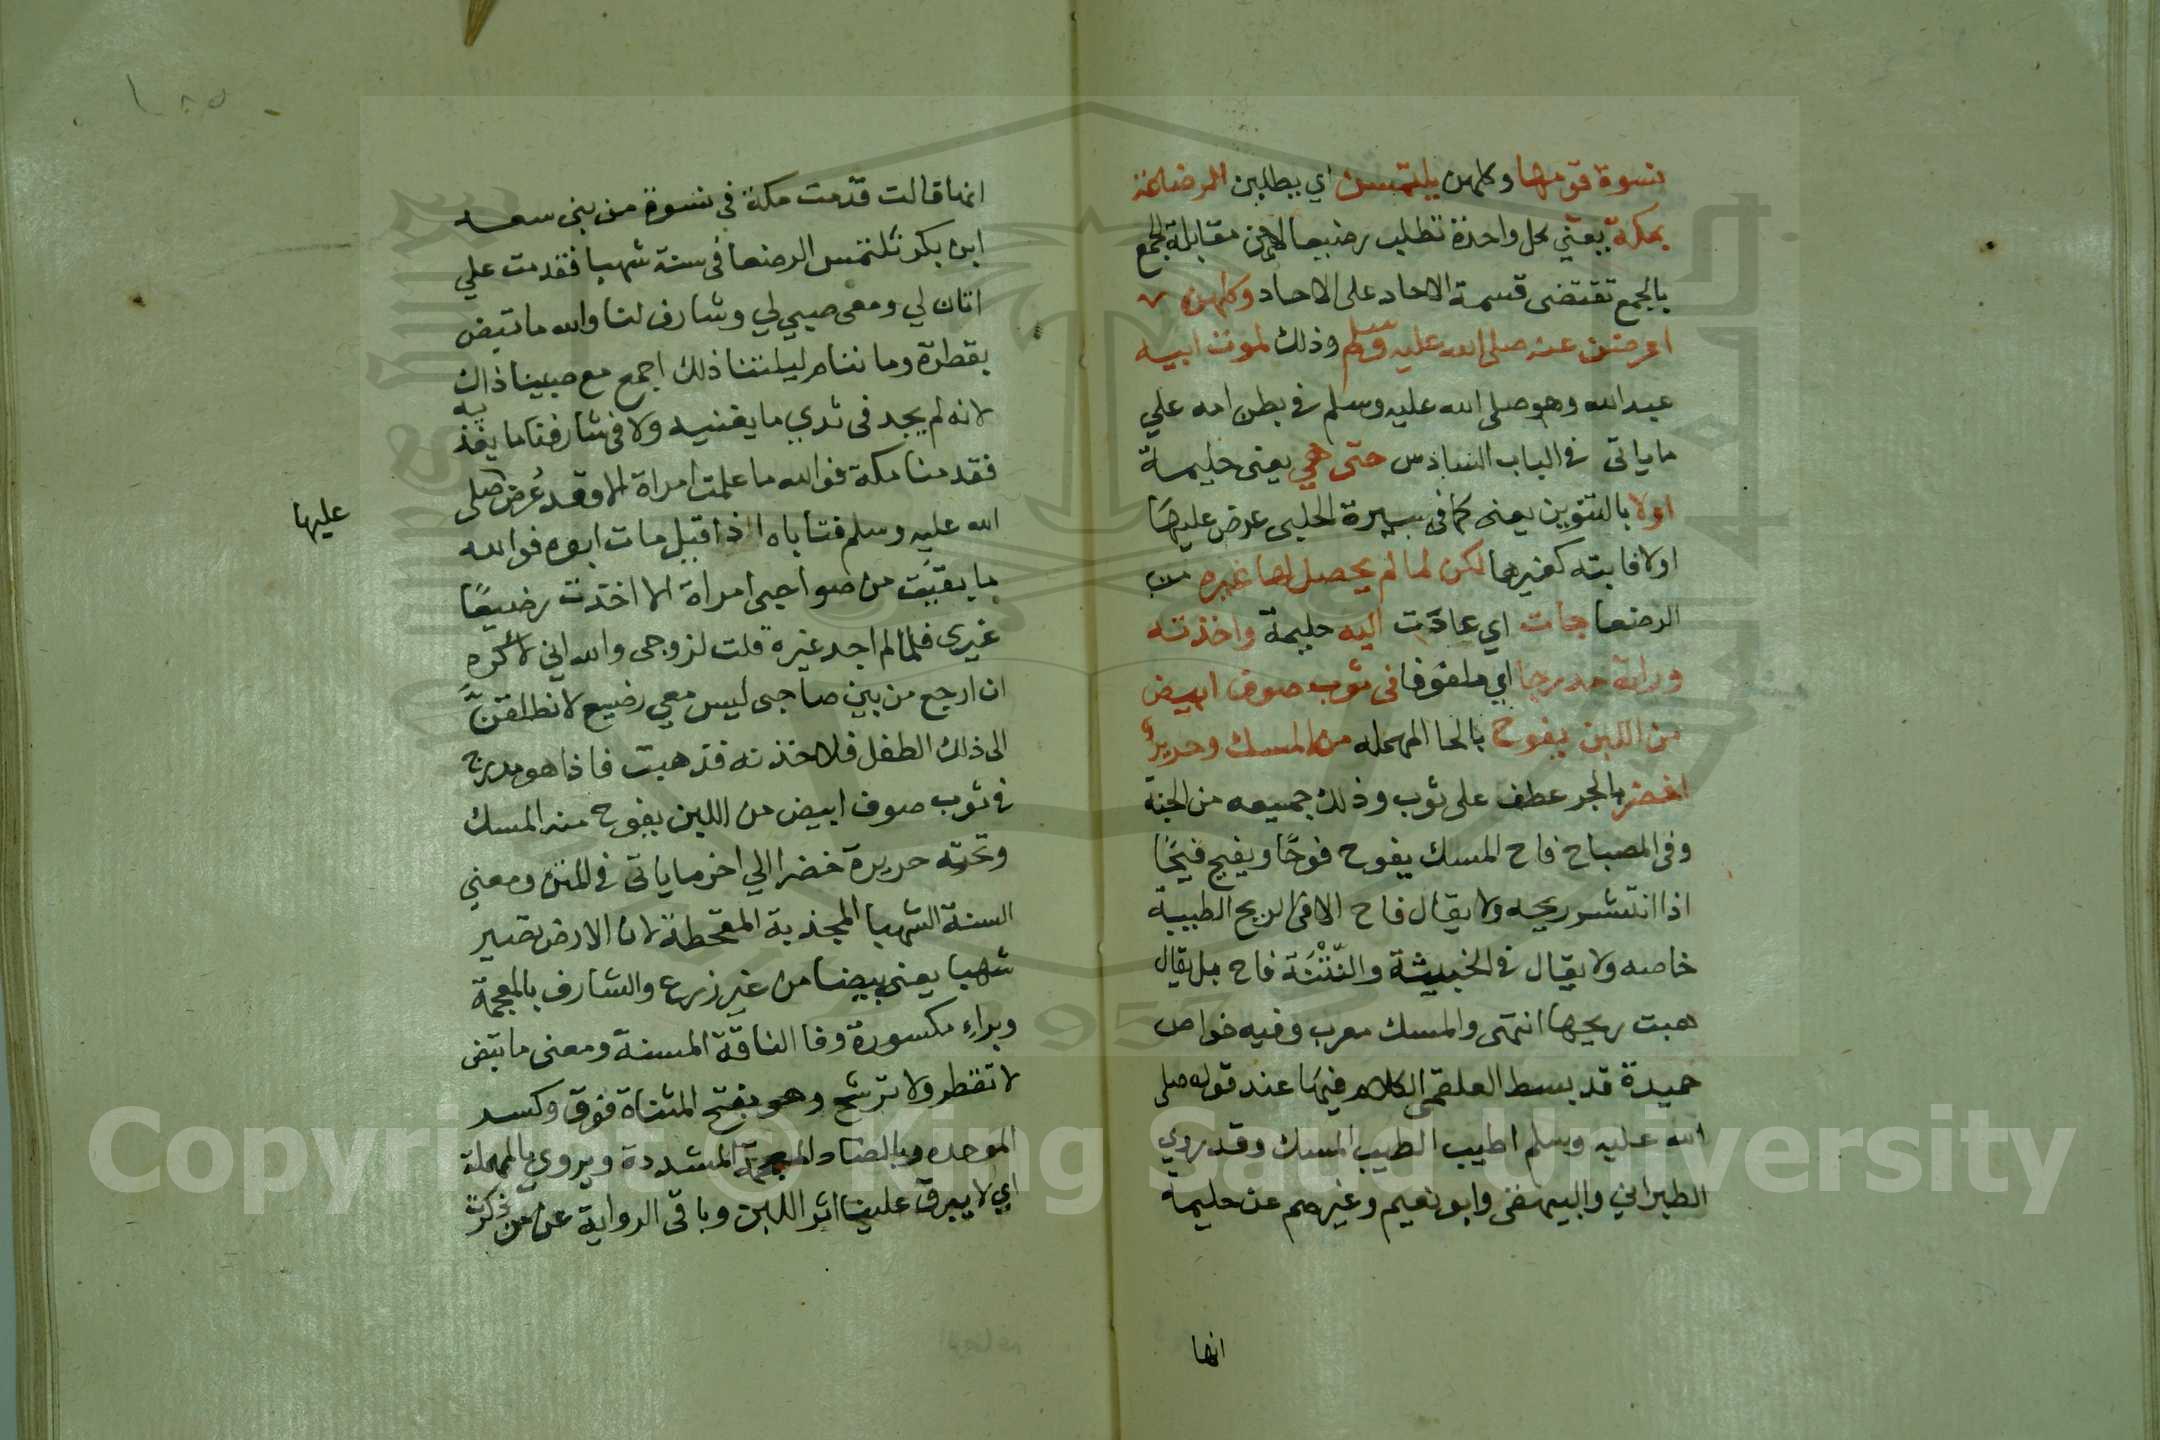 نسوة قومها وكلهن يلتمسن اي يطلبن المرضاعة
بمكة يعني كل واحدة تطلب رضيعا لان مقابلة الجمع
بالجمع تقتضى قسمة الاحاد على الاحاد وكلهن
اعرضن عنه صلى الله عليه وسلم وذلك لموت ابيه
عبد الله وهو صلى الله عليه وسلم في بطن امه علي
ما ياتى في الباب السادس حتى هي يعنى حليمة
اولا بالتنوين يعنى كما في سيرة الحلبى عرض عليها
اولا فابته كغيرها لكن لما لم يحصل لها غيره من
الرضعا جات اي عادت اليه حليمة واخذته
وراته مدرجا اي ملفوفا فى ثوب صوف ابيض
من اللبن يفوح بالحا المهمله من المسك وحرير
اخضر بالجر عطف على ثوب وذلك جميعه من الجنة
وفى المصباح فاح المسك يفوح فوحًا ويفيح فيحًا
اذا انتشر ريحه ولا يقال فاح الا في الريح الطيبة
خاصه ولا يقال في الخبيثة والنتنة فاح بل يقال
هبت ريحها انتهى والمسك معرب وفيه خواص
حميدة قد بسط العلقمى الكلام فيها عند قوله صلى
الله عليه وسلم اطيب الطيب المسك وقد روي
الطبراني والبيهقى وابو نعيم وغيرهم عن حليمة
انها
انها قالت قدمت مكة في نسوة من بنى سعد
ابن بكر نلتمس الرضعا فى سنة شهبا فقدمت علي
اتان لي ومعى صبي لي وشارف لنا والله ما تبض
بقطرة وما ننام ليلتنا ذلك اجمع مع صبينا ذاك
لانه لم يجد فى ثدي ما يغنيه ولا في شارفنا ما يغذيه
فقدمنا مكة فوالله ما علمت امراة الا وقد عُرض صلى
عليها
الله عليه وسلم فتاباه اذا قيل مات ابوه فوالله
ما بقيت من صواحبى امراة الا اخذت رضيعًا
غيرى فلما لم اجد غيره قلت لزوجى والله اني لاكره
ان ارجع من بين صاحبى ليس معي رضيع لانطلقنَّ
الى ذلك الطفل فلاخذنه فذهبت فاذا هو مدرج
في ثوب صوف ابيض من اللبن يفوح منه المسك
وتحته حريرة خضرا الي اخر ما ياتى في المتن ومعني
السنة الشهبا المجذبة المقحطة لان الارض تصير
شهبا يعنى بيضا من غير زرع والشارف بالمعجمة
وبراءٍ مكسورة وفا الناقة المسنة ومعنى ما تبض
لا تقطر ولا ترشح وهو بفتح المثناة فوق وكسر
الموحده وبالضاد المعجمة المشددة ويروي بالمهملة
اي لا يبرق علينا اثر اللبن وباقى الرواية عن من ذكرت